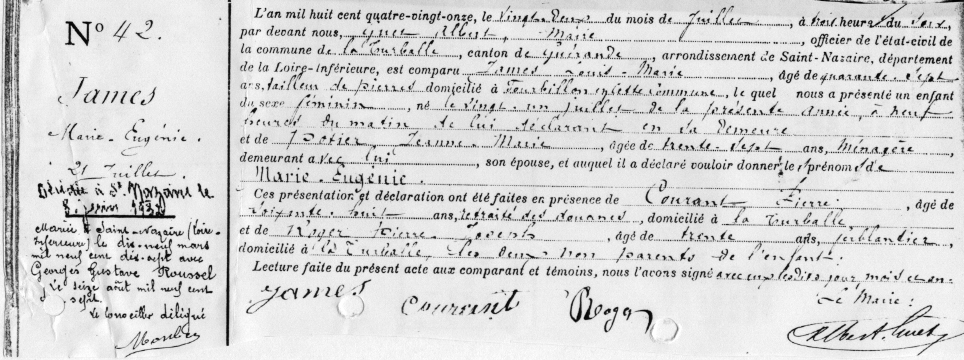 No 42.
James
Marie-Eugénie.
21 Juillet.
Décédée à St Nazaire le
8 1932
Mariée à Saint-Nazaire (Loire-
Inférieure) le dix-neuf mars
mil neuf cent dix-sept avec
Georges Gustave Roussel
le seize août mil neuf cent
sept.
Le Conseiller délégué
L'an mil huit cent quatre-vingt-onze, le vingt-deux du mois de Juillet, à trois heures du soir,
par devant nous, Albert, Marie, officier de l'état-civil de
la commune de la Turballe, canton de Guérande, arrondissement de Saint-Nazaire, département
de la Loire-Inférieure, est comparu James Louis-Marie, âgé de quarante-sept
ans, tailleur de pierres domicilié à en cette commune, le quel nous a présenté un enfant
du sexe féminin, né le vingt-un juillet de la présente année, à neuf
heures du matin de lui déclarant en sa demeure
et de Potier, Jeanne-Marie, âgée de trente-sept ans, Ménagère
demeurant avec lui, son épouse, et auquel il a déclaré vouloir donner les prénoms de
Marie-Eugénie.
Ces présentation et déclaration ont été faites en présence de Courant, Pierre, âgé de
soixante-huit ans, retraité des douanes, domicilié à la Turballe,
et de Roger Pierre-Joseph, âgé de trente ans, ferblantier,
domicilié à la Turballe, les deux non parents de l'enfant.
Lecture faite du présent acte aux comparant et témoins, nous l'avons signé avec eux les dits jour, mois et an.
Le Maire:
James Courant Roger
Albert